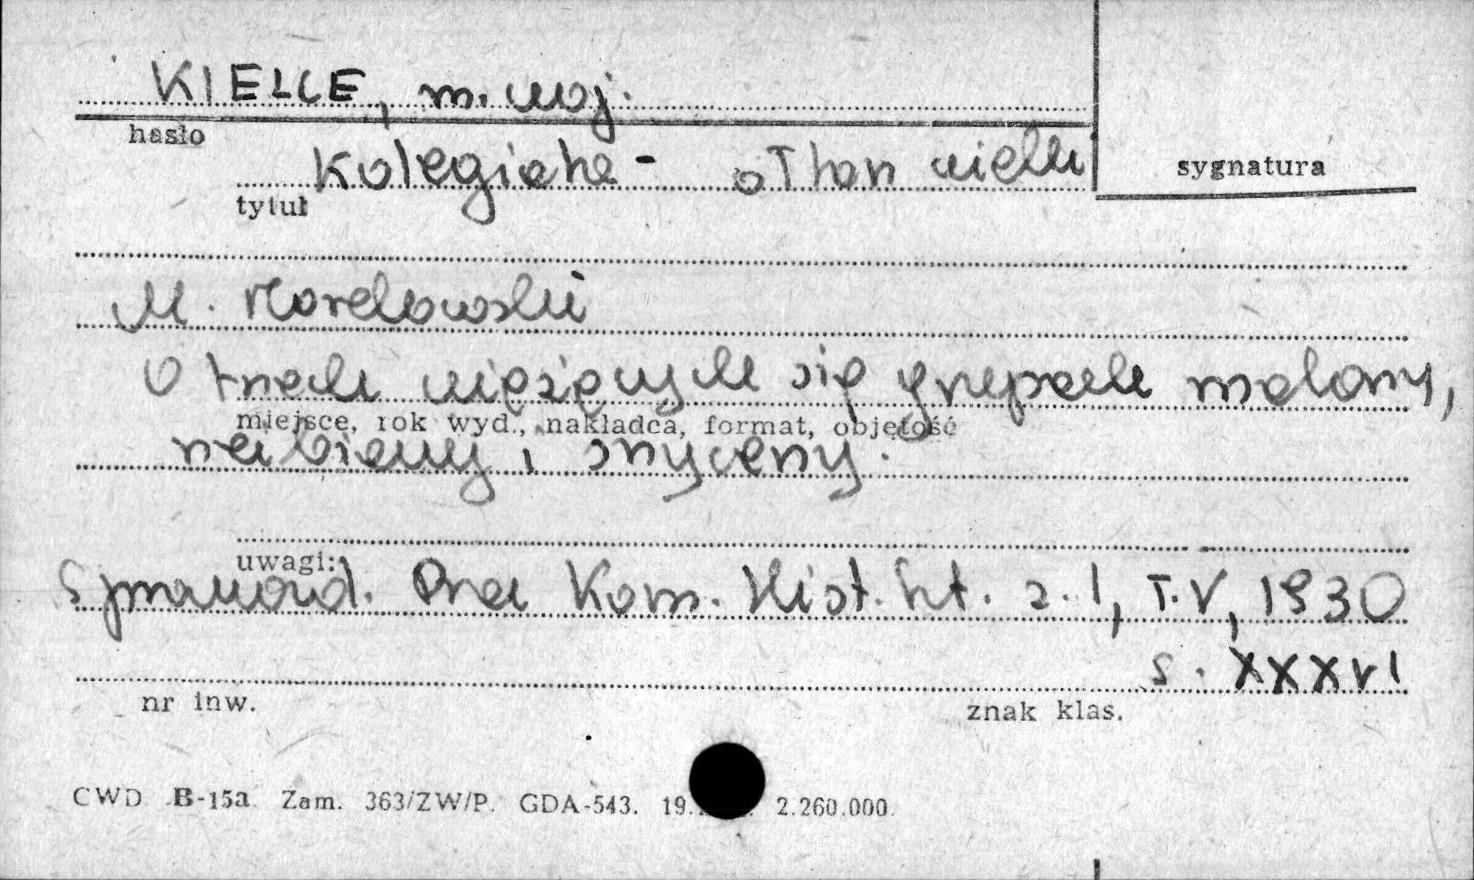 KIELCE, m. woj.
hasło
sygnatura
Kolegiata - ołtarz wielki
tytuł
M. Morelowski
O trzech wiążących się grupach malarzy,
miejsce, rok wyd., nakładca, format, objętość
rzeźbiarzy i snycerzy.
uwagi:
Sprawozd. Prac Kom. Hist. Szt. z. 1, T. V, 1930
s. XXXVI
nr inw.
znak klas.
CWD B-15a Zam. 363/ZW/P. GDA-543. 19. 2.260.000